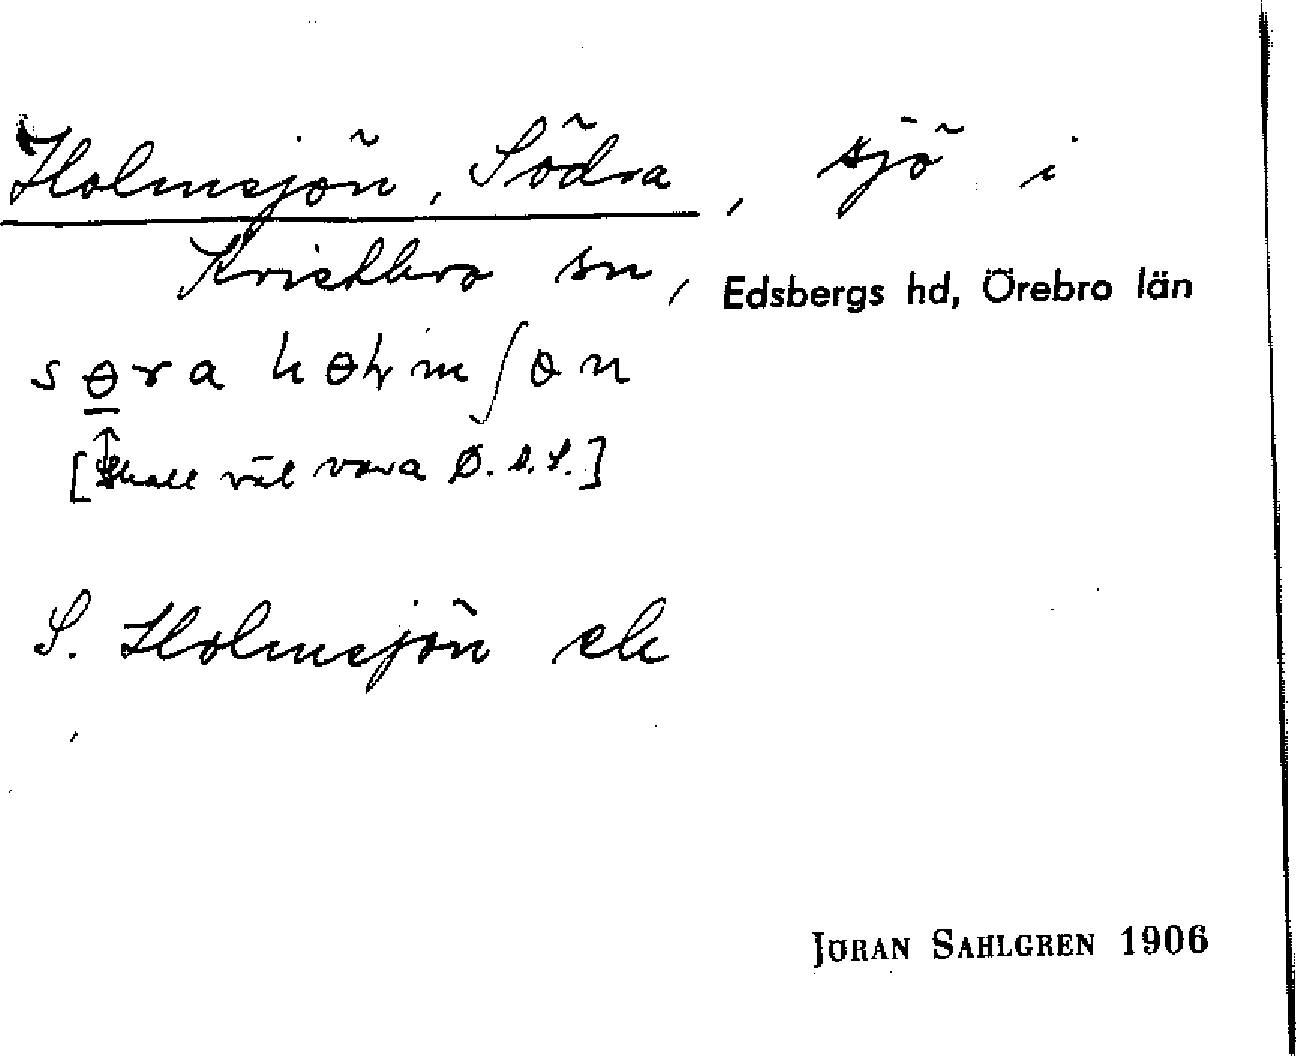 Holmsjön, Södra, sjö i
Knistbro sn, Edsbergs hd, Örebro län
søra hɵɫmʃɵn
[↑Skall väl vara Ø. J.S.]
S. Holmsjön ek
JÖRAN SAHLGREN 1906